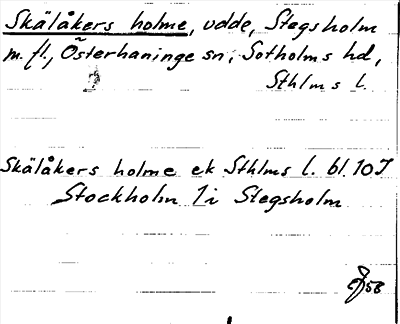 Skälåkers holme, udde, Stegsholm
m. fl., Österhaninge sn, Sotholms hd,
Sthlms l.
Skälåkers holme ek Sthlms l. bl. 10J
Stockholm 1 i Stegsholm
58